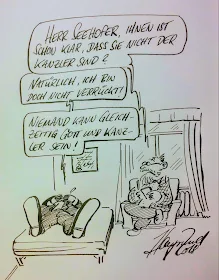 HERR SEEHOFER, IHNEN IST
SCHON KLAR, DASS SIE NICHT DER
KANZLER SIND?
NATÜRLICH, ICH BIN
DOCH NICHT VERRÜCKT!
NIEMAND KANN GLEICH-
ZEITIG GOTT UND KANZ-
LER SEIN!